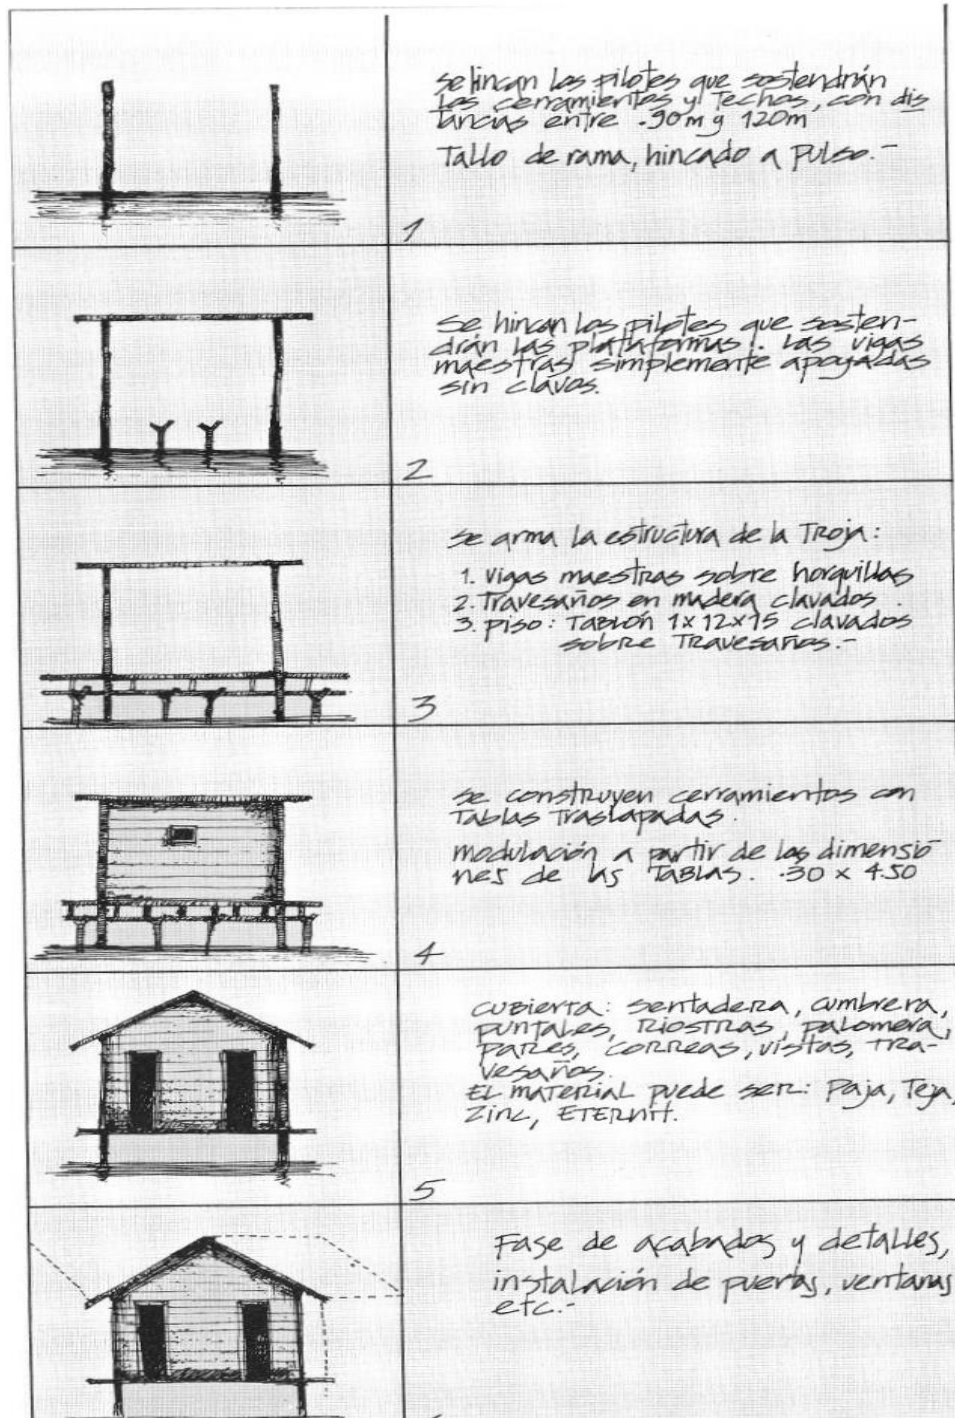 se hincan los pilotes que sostendrán
los cerramientos y Techos, con dis
tancias entre .90m y 120m
Tallo de rama, hincado a pulso.-
1
se hincan los pilotes que sosten-
drán las plataformas. Las vigas
maestras simplemente apoyadas
sin clavos.
2
se arma la estructura de la Troja:
1. vigas maestras sobre horquillas
2. Travesaños en madera clavados.
3. piso: Tablón 1x12x15 clavados
sobre Travesaños.-
3
se construyen cerramientos con
Tablas Traslapadas.
modulación a partir de las dimensio
nes de las TABLAS. .30 x 4.50
4
CUBIERTA: sentadera, cumbrera,
puntales, riostras, palomera,
pares, correas, vistas, tra-
vesaños.
EL MATERIAL puede ser: Paja, Teja,
Zinc, ETERNIT.
5
Fase de acabados y detalles,
instalación de puertas, ventanas
etc.-